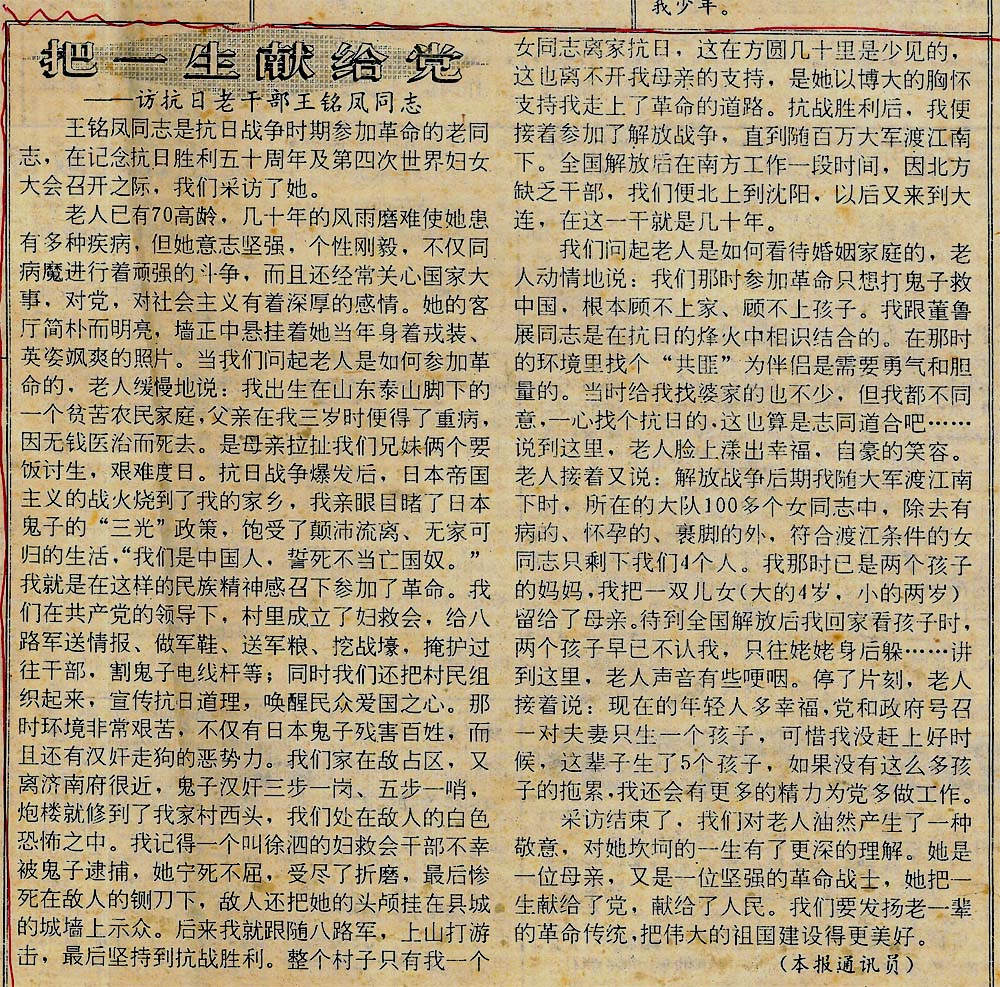 我少年。
把一生献给党
——访抗日老干部王铭凤同志
王铭凤同志是抗日战争时期参加革命的老同
志，在记念抗日胜利五十周年及第四次世界妇女
大会召开之际，我们采访了她。
老人已有70高龄，几十年的风雨磨难使她患
有多种疾病，但她意志坚强，个性刚毅，不仅同
病魔进行着顽强的斗争，而且还经常关心国家大
事，对党，对社会主义有着深厚的感情。她的客
厅简朴而明亮，墙正中悬挂着她当年身着戎装、
英姿飒爽的照片。当我们问起老人是如何参加革
命的，老人缓慢地说：我出生在山东泰山脚下的
一个贫苦农民家庭，父亲在我三岁时便得了重病，
因无钱医治而死去。是母亲拉扯我们兄妹俩个要
饭讨生，艰难度日。抗日战争爆发后，日本帝国
主义的战火烧到了我的家乡，我亲眼目睹了日本
鬼子的“三光”政策，饱受了颠沛流离、无家可
归的生活，“我们是中国人，誓死不当亡国奴。”
我就是在这样的民族精神感召下参加了革命。我
们在共产党的领导下，村里成立了妇救会，给八
路军送情报、做军鞋、送军粮、挖战壕，掩护过
往干部，割鬼子电线杆等；同时我们还把村民组
织起来，宣传抗日道理，唤醒民众爱国之心。那
时环境非常艰苦，不仅有日本鬼子残害百姓，而
且还有汉奸走狗的恶势力。我们家在敌占区，又
离济南府很近，鬼子汉奸三步一岗、五步一哨，
炮楼就修到了我家村西头，我们处在敌人的白色
恐怖之中。我记得一个叫徐泗的妇救会干部不幸
被鬼子逮捕，她宁死不屈，受尽了折磨，最后惨
死在敌人的铡刀下，敌人还把她的头颅挂在县城
的城墙上示众。后来我就跟随八路军，上山打游
击，最后坚持到抗战胜利。整个村子只有我一个
女同志离家抗日，这在方圆几十里是少见的，
这也离不开我母亲的支持，是她以博大的胸怀
支持我走上了革命的道路。抗战胜利后，我便
接着参加了解放战争，直到随百万大军渡江南
下。全国解放后在南方工作一段时间，因北方
缺乏干部，我们便北上到沈阳，以后又来到大
连，在这一干就是几十年。
我们问起老人是如何看待婚姻家庭的，老
人动情地说：我们那时参加革命只想打鬼子救
中国，根本顾不上家、顾不上孩子。我跟董鲁
展同志是在抗日的烽火中相识结合的。在那时
的环境里找个“共匪”为伴侣是需要勇气和胆
量的。当时给我找婆家的也不少，但我都不同
意，一心找个抗日的，这也算是志同道合吧……
说到这里，老人脸上漾出幸福，自豪的笑容。
老人接着又说：解放战争后期我随大军渡江南
下时，所在的大队100多个女同志中，除去有
病的、怀孕的、裹脚的外，符合渡江条件的女
同志只剩下我们4个人。我那时已是两个孩子
的妈妈，我把一双儿女（大的4岁，小的两岁）
留给了母亲。待到全国解放后我回家看孩子时，
两个孩子早已不认我，只往姥姥身后躲……讲
到这里，老人声音有些哽咽。停了片刻，老人
接着说：现在的年轻人多幸福，党和政府号召
一对夫妻只生一个孩子，可惜我没赶上好时
候，这辈子生了5个孩子，如果没有这么多孩
子的拖累，我还会有更多的精力为党多做工作。
采访结束了，我们对老人油然产生了一种
敬意，对她坎坷的一生有了更深的理解。她是
一位母亲，又是一位坚强的革命战士，她把一
生献给了党，献给了人民。我们要发扬老一辈
的革命传统，把伟大的祖国建设得更美好。
（本报通讯员）